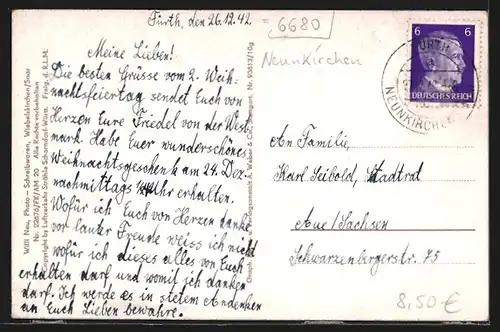 Fürth, den 26.12.42.
6680
Neunkirchen
Meine Lieben!
Die besten Grüsse vom 2. Weih-
nachtsfeiertag sendet Euch von
Herzen Eure Friedel von der West
mark. Habe Euer wunderschönes
Weihnachtsgeschenk am 24. Dez.
nachmittags Uhr erhalten.
Wofür ich Euch von Herzen danke,
vor lauter Freude weiss ich nicht
wofür ich dieses alles von Euch
erhalten darf und womit ich danken
darf. Ich werde es in stetem Andenken
an Euch Lieben bewahre.
Willi Neu, Photo - Schreibwaren, Wiebelskirchen/Saar
Nr. 22676/FK/AM 20 Alle Rechte vorbehalten
Copyright by Luftverkehr Strähle Schorndorf-Württ. Freig. d. R.L.M.
6 6
DEUTSCHES REICH
FÜRTH
NEUNKIRCHEN
An Familie
Karl Seibold, Stadtrat
Aue/Sachsen
Schwarzenbergerstr. 75
8,50 €